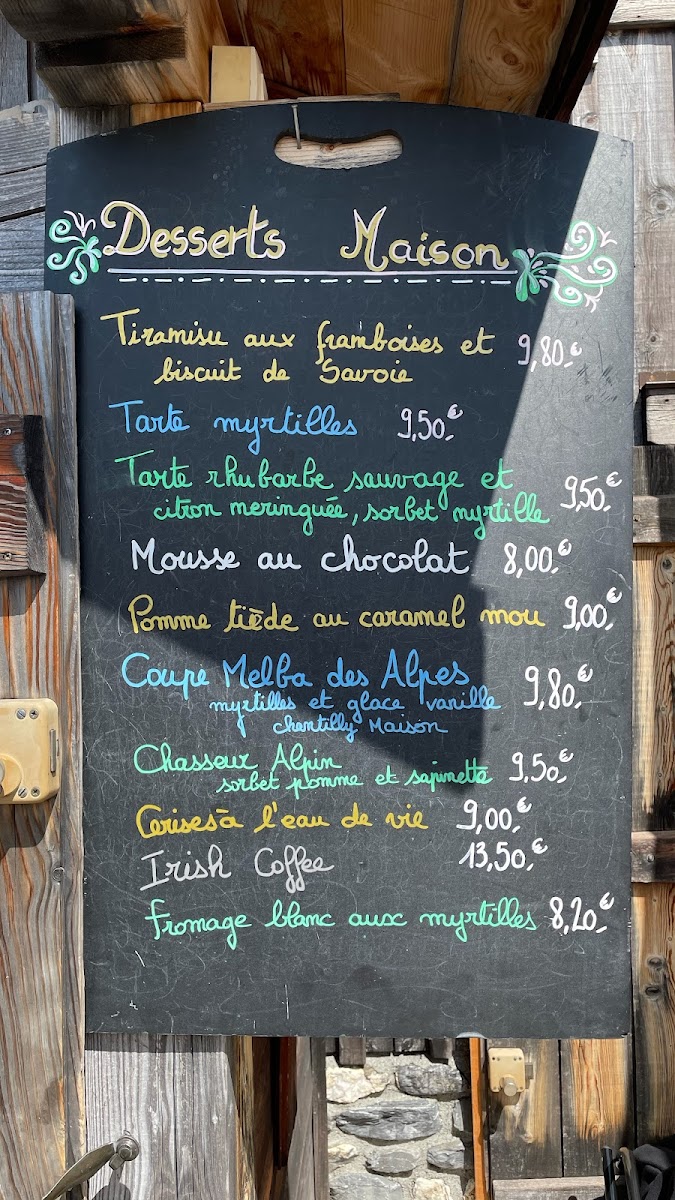 Desserts Maison
Tiramisu aux framboises et 9,80.€
biscuit de Savoie
Tarte myrtilles 9,50.€
Tarte rhubarbe sauvage et
citron meringuée, sorbet myrtille 9,50.€
Mousse au chocolat 8,00.€
Pomme tiède au caramel mou 9,00.€
Coupe Melba des Alpes
myrtilles et glace vanille 9,80.€
chantilly Maison
Chasseur Alpin
sorbet pomme et sapinette 9,50.€
Cerises à l'eau de vie 9,00.€
Irish Coffee 13,50.€
fromage blanc aux myrtilles 8,20.€